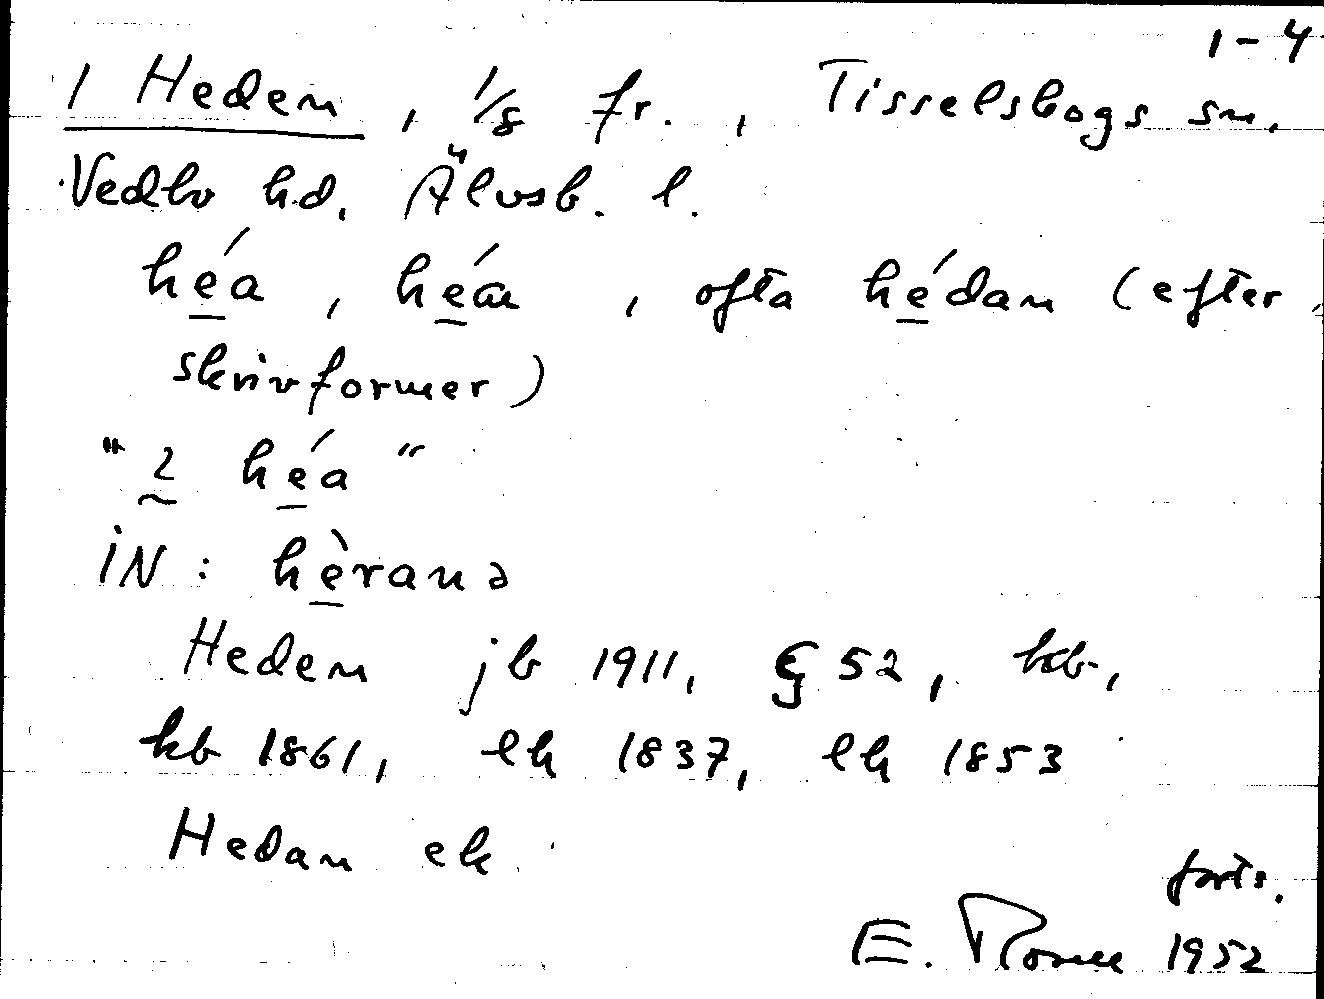 1-4
1 Heden, 1/8 fr., Tisselskogs sn.
Vedbo hd. Älvsb. l.
hé̱a, hé̱an, ofta hé̱dan (efter
skrivformer)
"2 hé̱a"
iN: hè̱ranə
Heden jb 1911, § 52, hkb,
kb 1861, lh 1837, lh 1853
Hedan ek
forts.
E. 1952